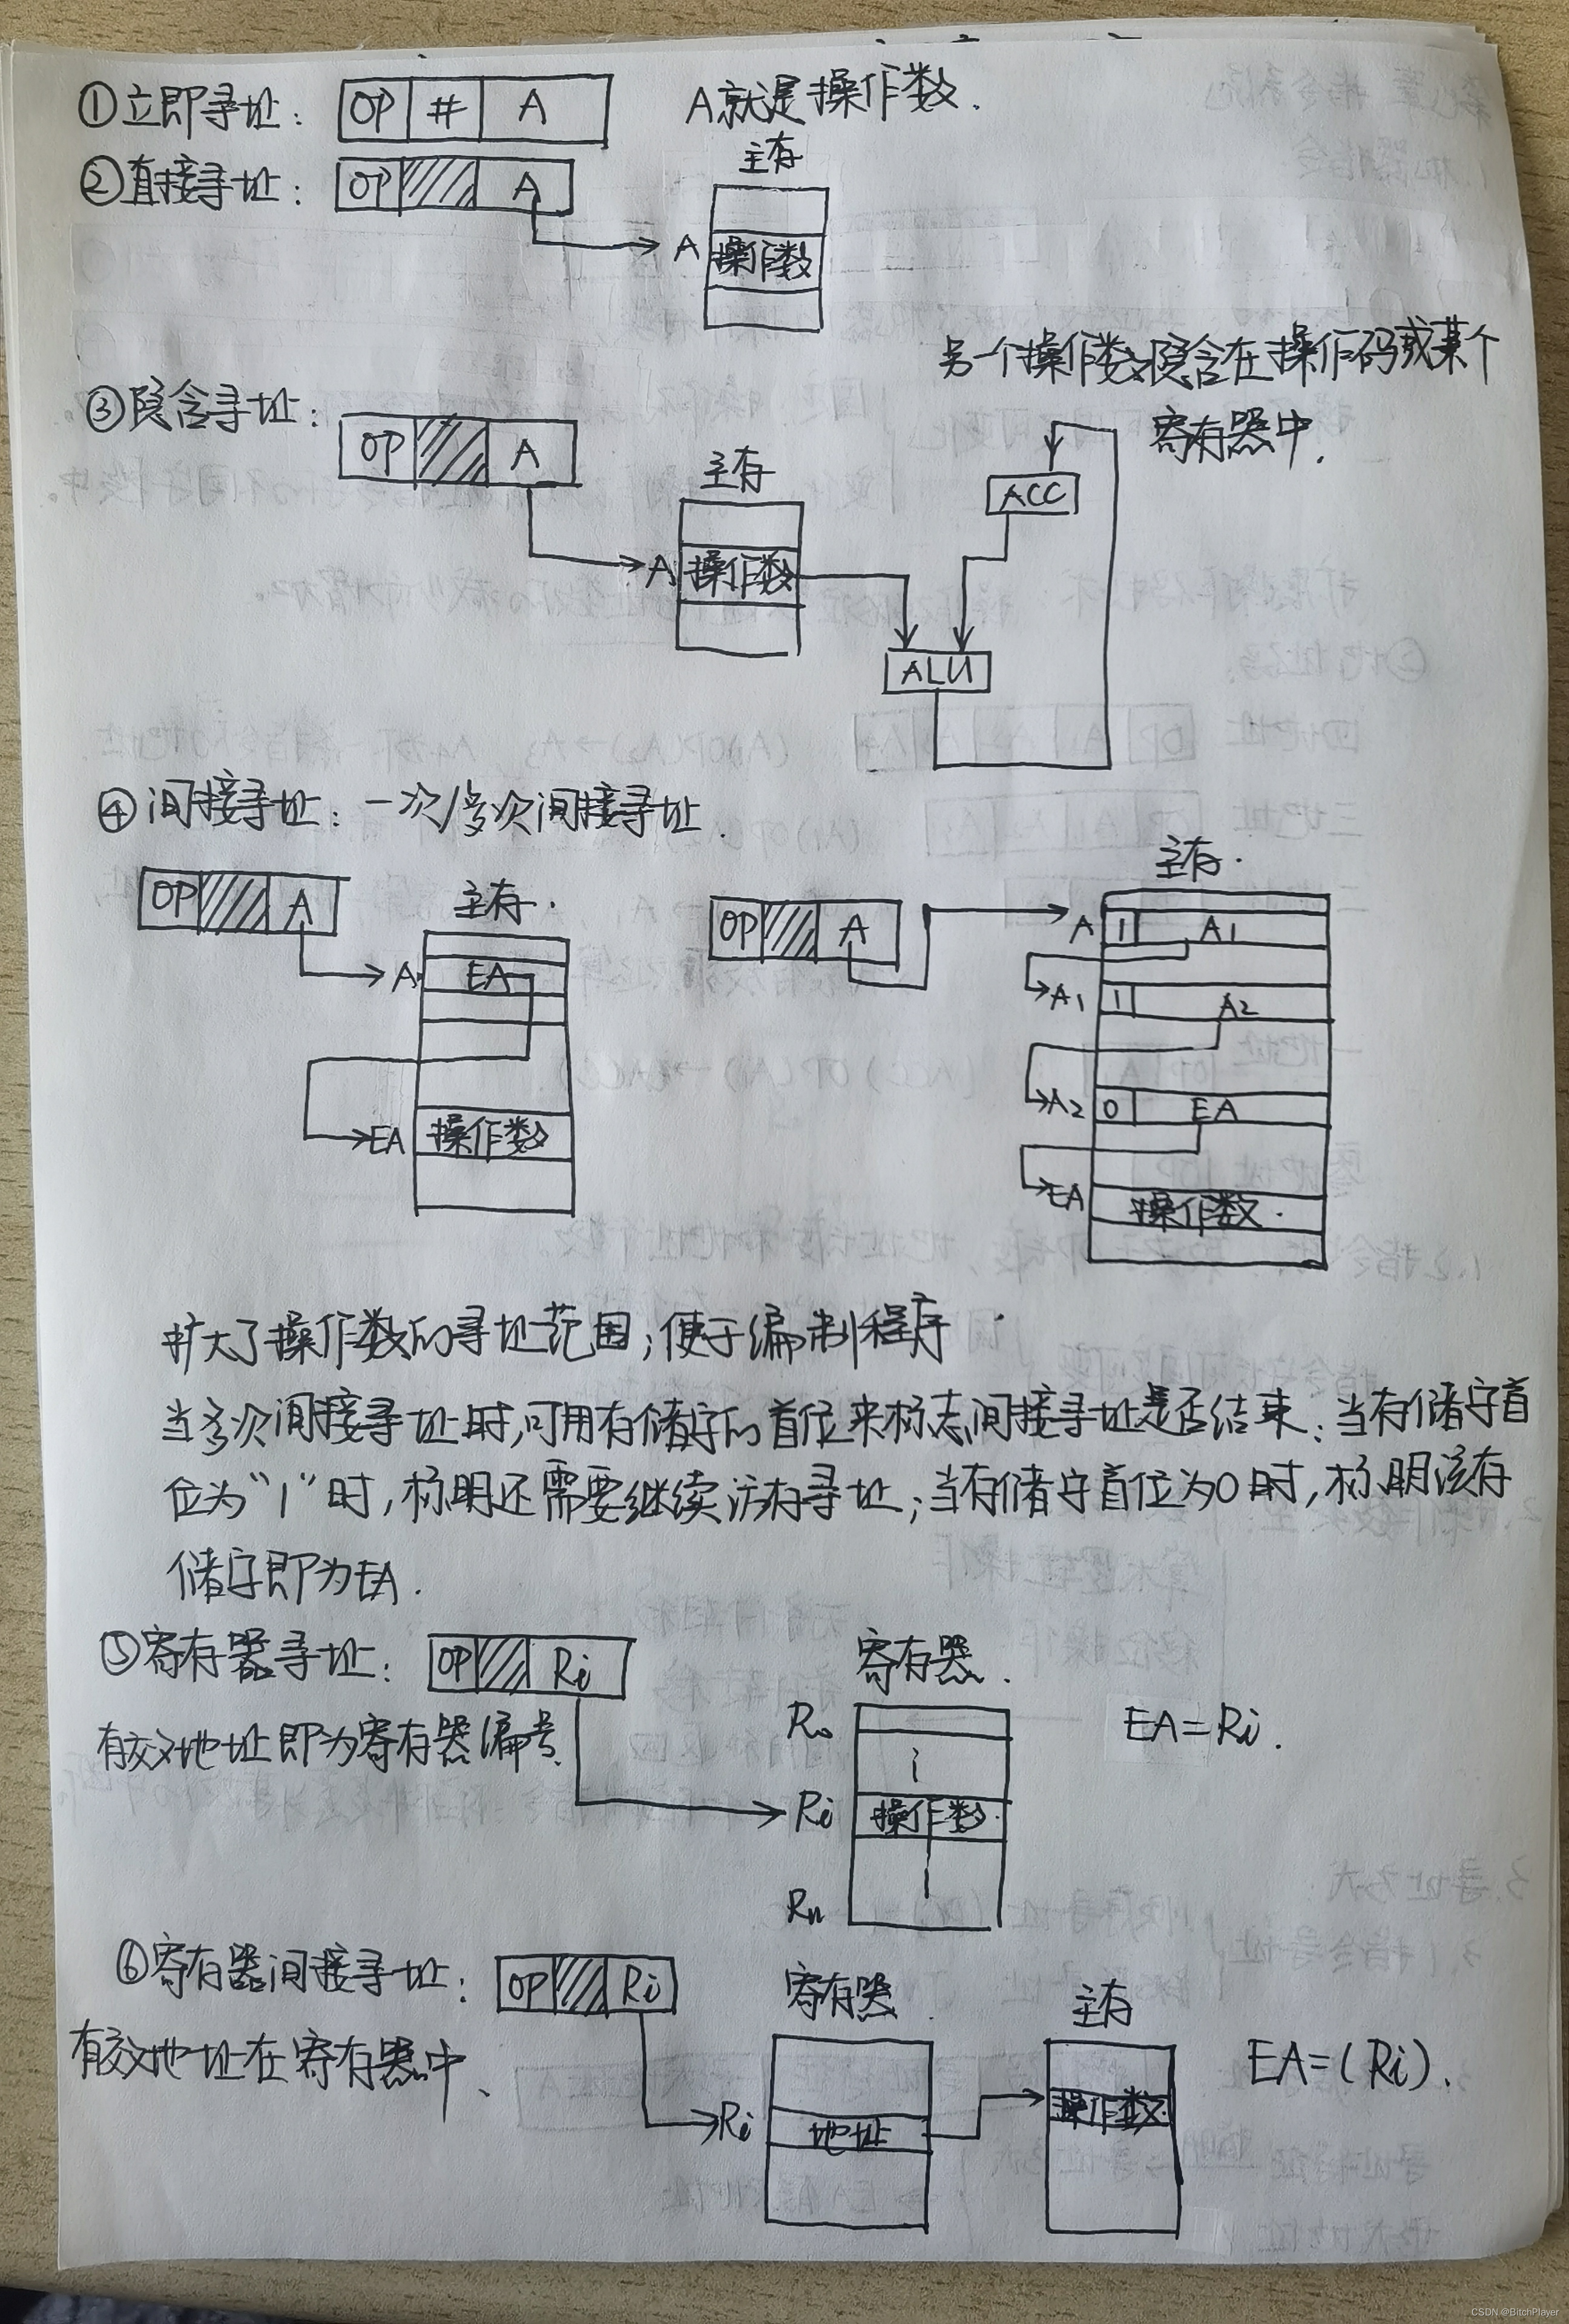 ①立即寻址: OP # A A就是操作数.
②直接寻址: OP A
主存
A 操作数
另一个操作数隐含在操作码或某个
寄存器中.
③隐含寻址: OP A
主存
ACC
A 操作数
ALU
④间接寻址: 一次/多次间接寻址.
OP A 主存.
A EA
EA 操作数
OP A 主存.
A 1 A1
A1 1 A2
A2 0 EA
EA 操作数.
扩大了操作数的寻址范围;便于编制程序
当多次间接寻址时,可用存储字的首位来标志间接寻址是否结束:当存储字首
位为"1"时,标明还需要继续访存寻址;当存储字首位为0时,标明该存
储字即为EA.
⑤寄存器寻址: OP Ri 寄存器.
有效地址即为寄存器编号.
R0
Ri 操作数.
Rn
EA=Ri.
⑥寄存器间接寻址: OP Ri 寄存器. 主存
有效地址在寄存器中、
Ri 地址
操作数.
EA=(Ri).
CSDN @BitchPlayer